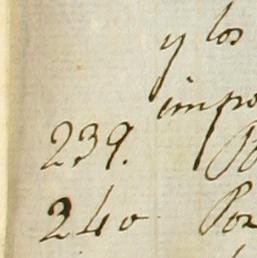 y los
impo
239. P
240 Por